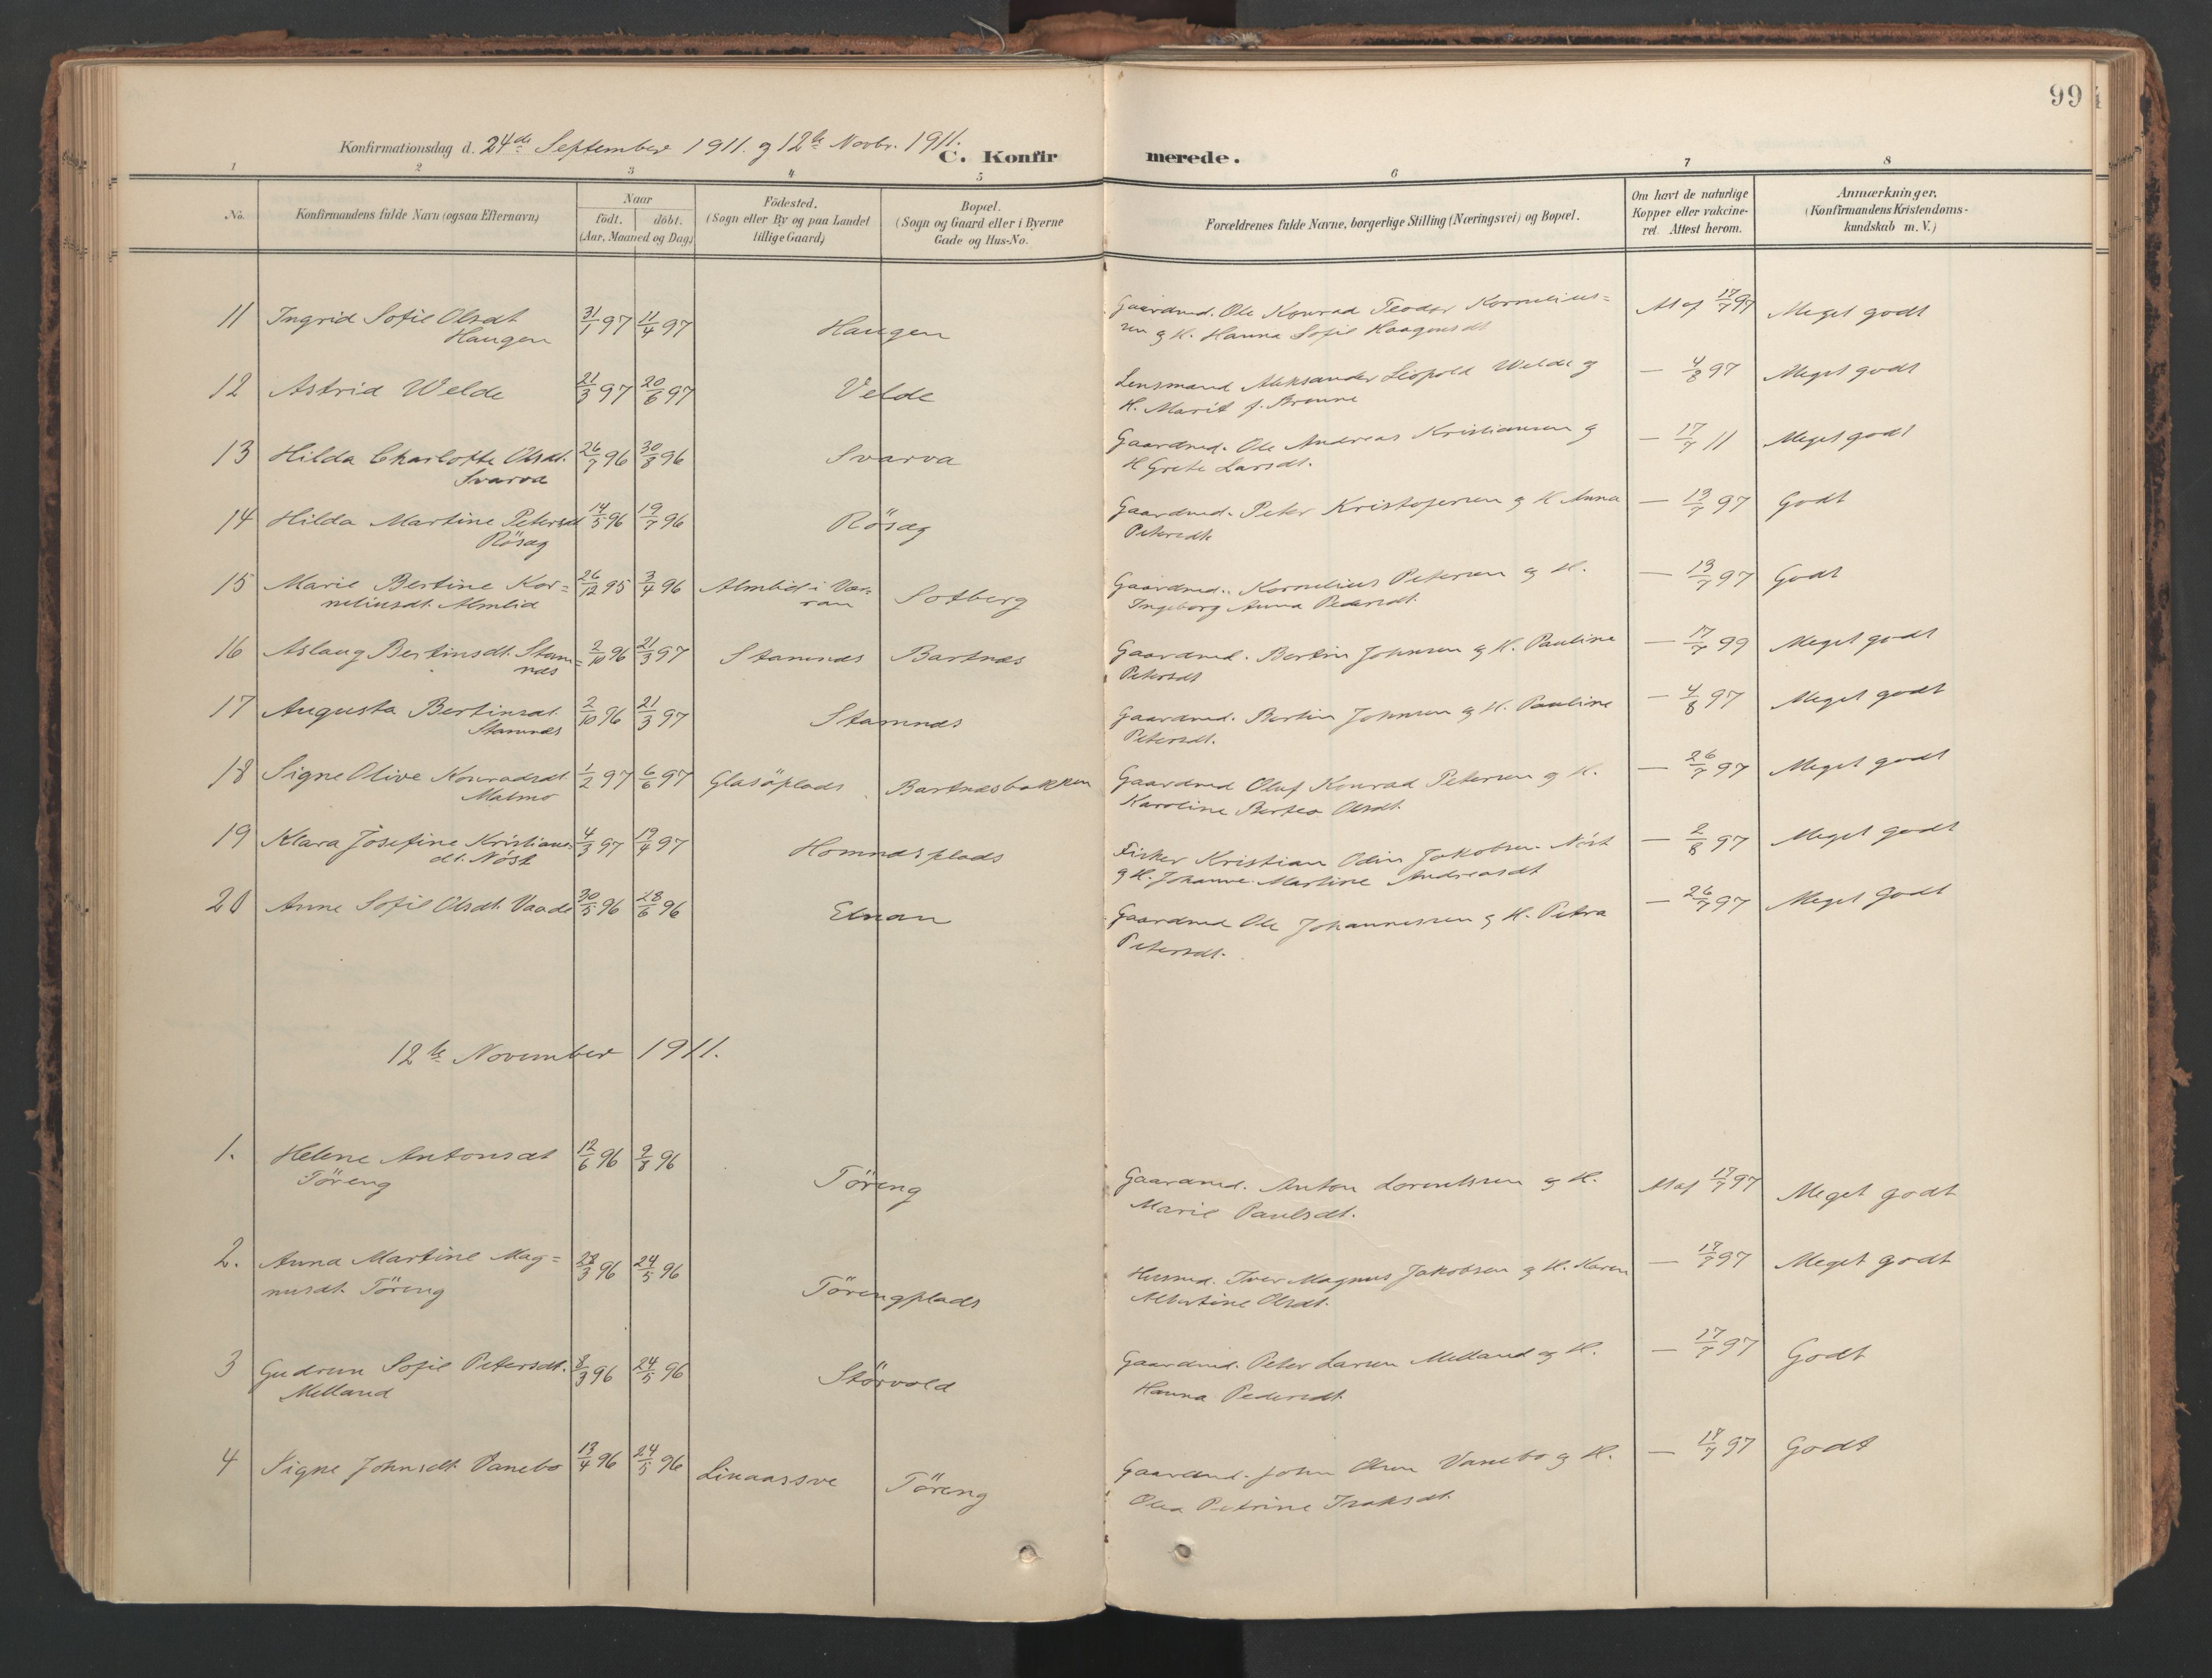 99
Konfirmationsdag d. 24de September 1911. og 12te Novbr. 1911.
C. Konfirmerede.
1 2 3 4 5 6 7 8
No.
Konfirmandens fulde Navn (ogsaa Efternavn)
Naar
födt. döbt.
(Aar, Maaned og Dag)
Födested.
(Sogn eller By og paa Landet
tillige Gaard)
Bopæl.
(Sogn og Gaard eller i Byerne
Gade og Hus-No.
Forældrenes fulde Navne, borgerlige Stilling (Næringsvei) og Bopæl.
Om havt de naturlige
Kopper eller vakcine-
ret. Attest herom.
Anmærkninger.
(Konfirmandens Kristendoms-
kundskab m. V.)
11 Ingrid Sofie Olsdt 31/1 97 11/4 97 Haugen Gaardmd. Ole Konrad Teodor Kornelius= At af 17/7 97 Meget godt
Haugen sen og H. Hanna Sofie Haagensdt
12 Astrid Welde 21/3 97 20/6 97 Velde Lensmand Aleksander Leopold Welde og — 4/8 97 Meget godt
H. Marit f. Brenne
13 Hilda Charlotte Olsdt. 26/7 96 30/8 96 Svarva Gaardmd. Ole Andreas Kristiansen og — 17/7 11 Meget godt
Svarva H Grete Larsdt.
14 Hilda Martine Petersdt 14/5 96 19/7 96 Rösæg Gaardmd. Peter Kristofersen og H Anna — 13/7 97 Godt
Rösæg Petersdt
15 Marie Bertine Kor= 26/12 95 3/4 96 Almlid i Vær= Sotberg Gaardmd. Kornelius Petersen og H. — 13/7 97 Godt
neliusdt. Almlid ran Ingeborg Anna Pedersdt.
16 Aslaug Bertinsdt. Stam= 2/10 96 21/3 97 Stamnes Bartnes Gaardmd. Bertin Johnsen og H. Pauline — 17/7 99 Meget godt
næs Petersdt
17 Augusta Bertinsdt. 2/10 96 21/3 97 Stamnæs Gaardmd. Bertin Johnsen og H. Pauline — 4/8 97 Meget godt
Stamnæs Petersdt.
18 Signe Olive Konradsdt. 1/2 97 6/6 97 Glasöplads Bartnæsbakken Gaardmd Oluf Konrad Petersen og H. — 26/7 97 Meget godt
Malmo Karoline Bertea Olsdt.
19 Klara Josefine Kristians= 4/3 97 19/4 97 Homnæsplads Fisker Kristian Odin Jakobsen Nöst — 2/8 97 Meget godt
dt. Nöst og H. Johanne Martine Andreasdt
20 Anne Sofie Olsdt. Vaade 30/5 96 28/6 96 Elnan Gaardmd Ole Johannessen og H. Petra — 26/7 97 Meget godt
Petersdt.
12te November 1911.
1. Helene Antonsdt 12/6 96 9/8 96 Töreng Gaardmd. Anton Lorentssen og H. At af 17/7 97 Meget godt
Töreng Marie Paulsdt.
2. Anna Martine Mag= 28/3 96 24/5 96 Törengplads Husmd. Iver Magnus Jakobsen og H. Karen — 17/7 97 Meget godt
nusdt. Töreng Albertine Olsdt.
3 Gudrun Sofie Petersdt. 8/3 96 24/5 96 Störvold Gaardmd. Peter Larsen Melland og H. — 17/7 97 Godt
Melland Hanna Pedersdt
4 Signe Johnsdt. Vanebo 13/4 96 24/5 96 Linaassve Töreng Gaardmd. John Olsen Vanebo og H. — 17/7 97 Godt
Olea Petrine Isaksdt.